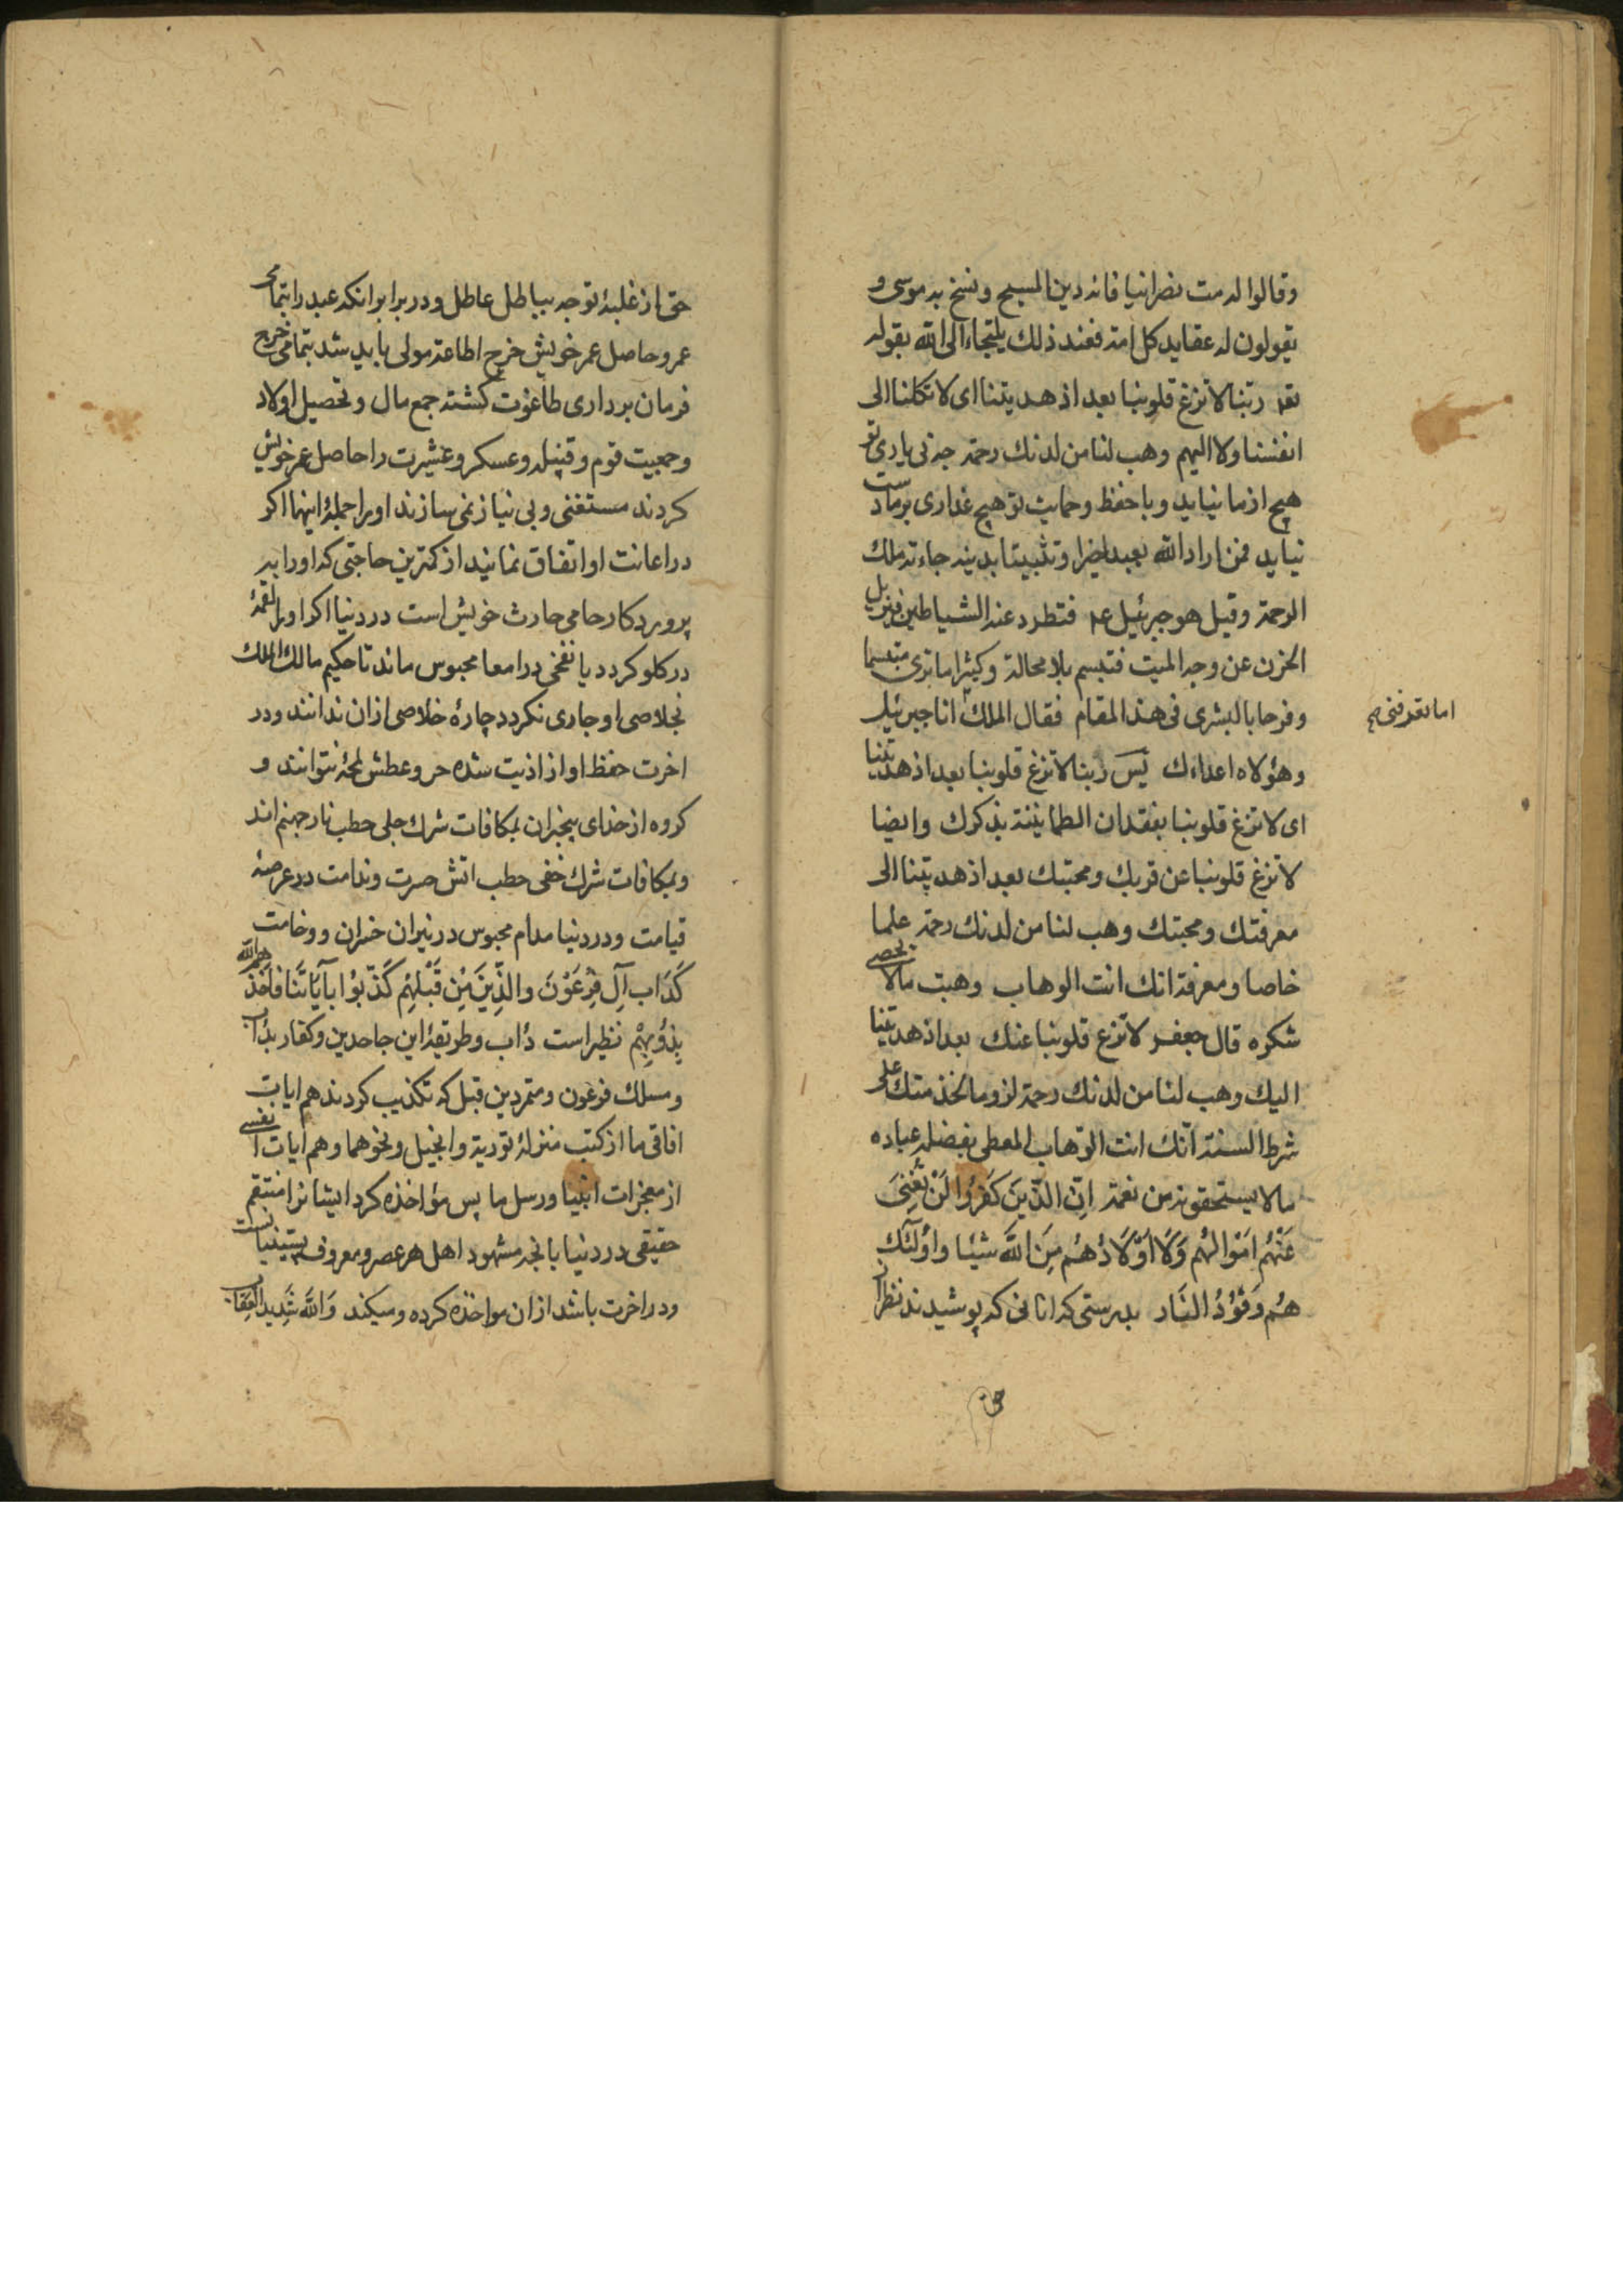 وقالوا له مت نصرانيا فانه دين المسيح ونسخ به موسى و
يقولون له عقايد كل امة فعند ذلك يلتجاء الى الله بقوله
تعه ربنا لا تزغ قلوبنا بعد اذ هديتنا اى لا تكلنا الى
انفسنا ولا اليهم وهب لنا من لدنك رحمة جه بى يارى تو
هيچ از ما نيايد وبا حفظ وحمايت تو هيچ غدارى بر ما دست
نيابد فمن اراد الله بعبد خيرا وتثبيتا بدينه جاءته ملك
الرحمة وقيل هو جبرئيل عم فتطرد عنه الشياطين فيزيل
الحزن عن وجه الميت فتبسم بلا محالة وكثيرا ما ترى مبتسما
وفرحا بالبشرى فى هذا المقام فقال الملك انا جبرئيل
اما تعرفنى صح
وهؤلاء اعداءك پس ربنا لا تزغ قلوبنا بعد اذ هديتنا
اى لا تزغ قلوبنا بفقدان الطمانينة بذكرك وايضا
لا تزغ قلوبنا عن قربك ومحبتك بعد اذ هديتنا الى
معرفتك ومحبتك وهب لنا من لدنك رحمة علما
خاصا ومعرفة انك انت الوهاب وهبت مالا يحصى
شكره قال جعفر لا تزغ قلوبنا عنك بعد اذ هديتنا
اليك وهب لنا من لدنك رحمة لزوما لخدمتك على
شرط السنة انك انت الوهاب المعطى بفضله عباده
مالا يستحقونه من نعمة اِنَّ الذِّينَ كَفَرُوا لَنْ تُغْنِىَ
عَنْهُم اَمْوَالهُم وَلَا اَوْلَادُهُم مِنَ اللَّهِ شَيْئا وَاُولَٓئك
هُم وَقُودُ النَّار بدرستى كه انانى كه پوشيدند نظر از
حق
حق از غلبۀ توجه بباطل عاطل ودر برابر انكه عبد را بتمامى
عمر وحاصل عمر خويش خرج اطاعة مولى بايد شد بتمامى خرج
فرمان بردارى طاغوت كشته جمع مال وتحصيل اولاد
وجمعيت قوم وقبيله وعسكر وعشيرت را حاصل عمر خويش
كردند مستغنى وبى نياز نمى سازند او را جملۀ اينها اكر
در اعانت او اتفاق نمانيد از كمترين حاجتى كه او را به
پروردكار حامى حارث خويش است در دنيا اكر او را لقمۀ
در كلو كردد يا نفخى در امعا محبوس ماند تا حكيم مالك الملك
بخلاصى او جارى نكردد چارۀ خلاصى ازان ندانند ودر
اخرت حفظ او از اذيت شده حر وعطش لمحۀ نتوانند و
كروه از خداى بيخبران بمكافات شرك جلى حطب نار جهنم اند
وبمكافات شرك خفى حطب اتش حسرت وندامت در عرصه
قيامت ودر دنيا مدام محبوس در نيران خسران ووخامت
كَدَاْب آلِ فِرْعَوْنَ والذِّينَ مِن قَبْلِهِم كَذَّبُوا بآيَاتِنَا فَاَخَذَهم الله
بِذُنُوبِهِمْ نظير است دأب وطريقۀ اين جاحدين وكفار بدأب
ومسلك فرعون ومتمردين قبل كه تكذيب كردند هم ايات
افاقى ما از كتب منزلۀ تورية وانجيل ونحوهما وهم ايات انفسى
از معجزات انبيا ورسل ما پس مؤاخذه كرد ايشانرا منتقم
حقيقى در دنيا بانچه مشهود اهل هر عصر ومعروف
ودر اخرت باشد ازان مواخذه كرده وميكند وَاللَّه شَدِيد الْعِقَاب